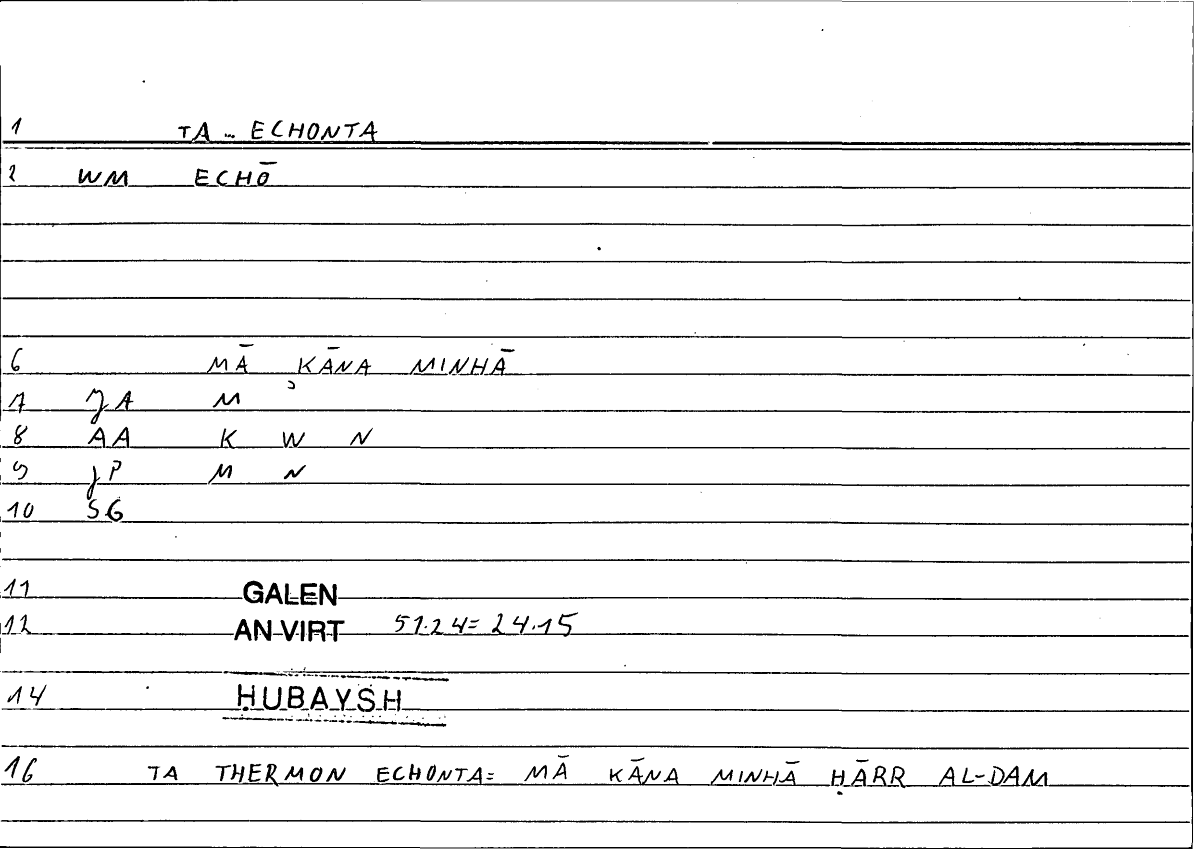 1 TA … ECHONTA
2 WM ECHŌ
6 MĀ KĀNA MINHĀ
7 JA M ʾ
8 AA K W N
9 JP M N
10 SG
11 GALEN
12 AN VIRT 51.24= 24.15
14 ḤUBAYSH
16 TA THERMON ECHONTA= MĀ KĀNA MINHĀ ḤĀRR AL-DAM